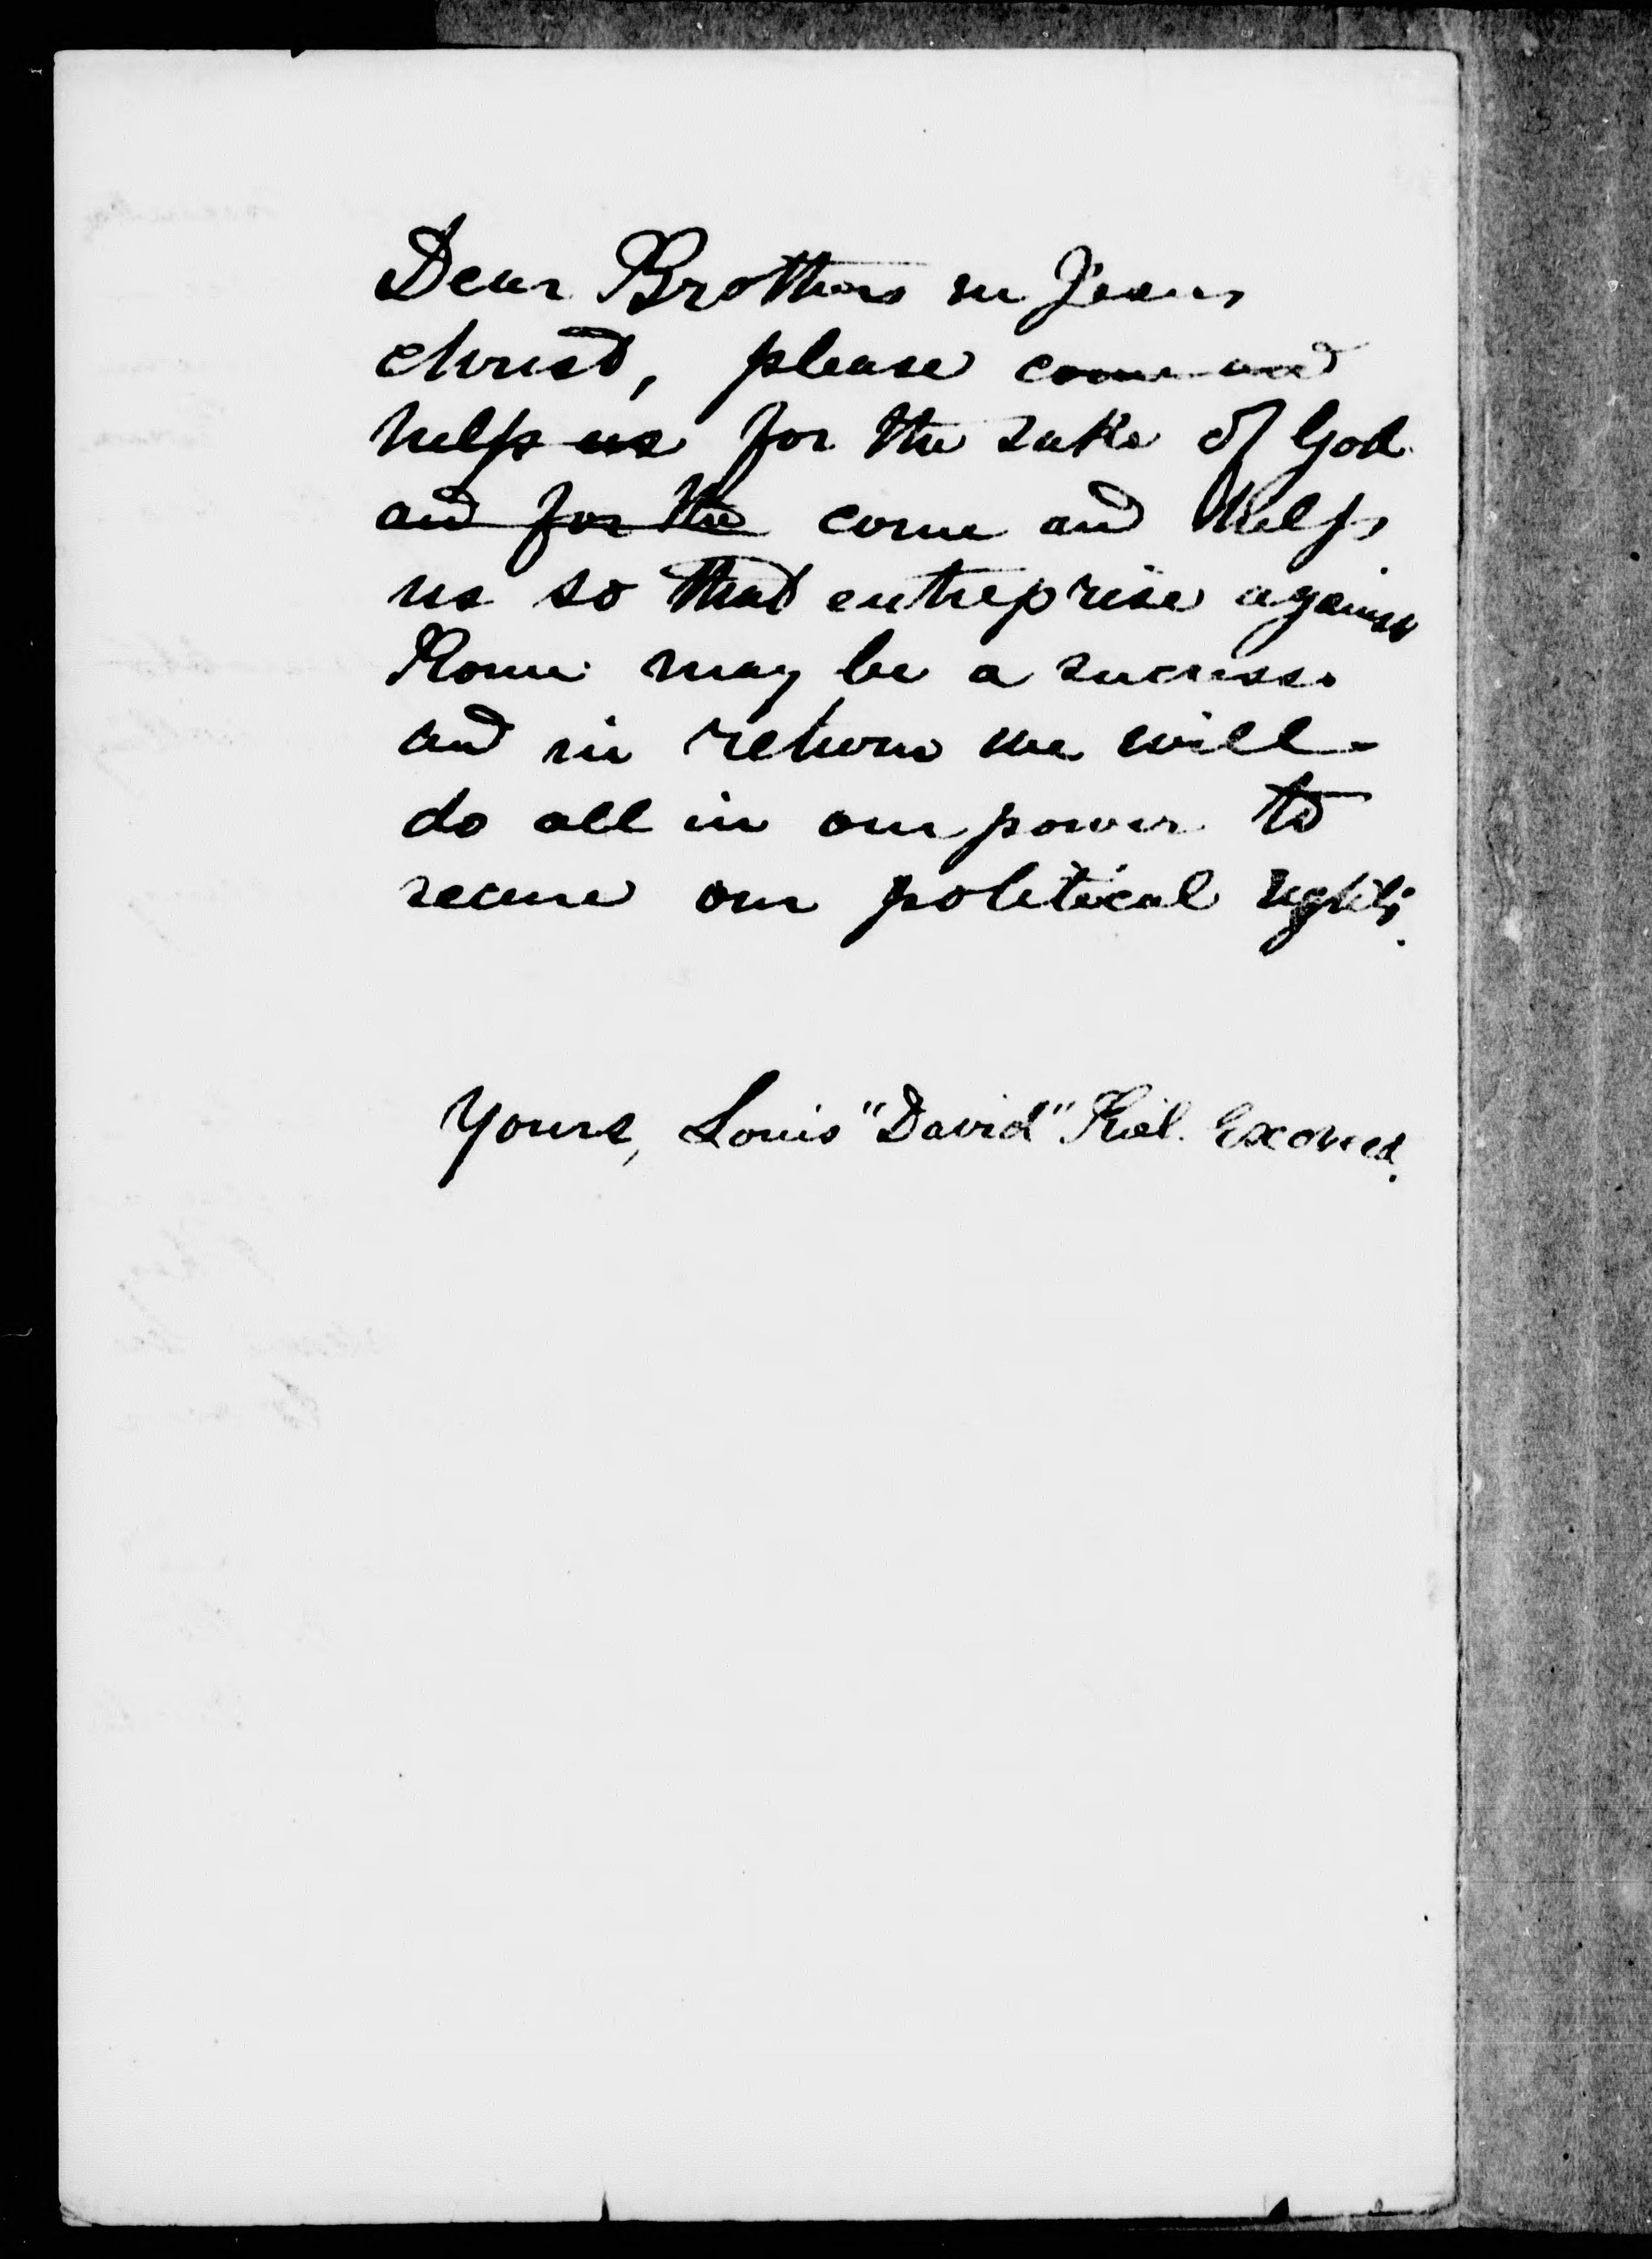 Dear Brothers in Jesus
christ, please come and
help us for the sake of God
and for the come and help
us so that entreprise against
Rome may be a success.
and in return we will
do all in our power to
secure our political rights.
Yours, Louis "David" Riel. Exovid.